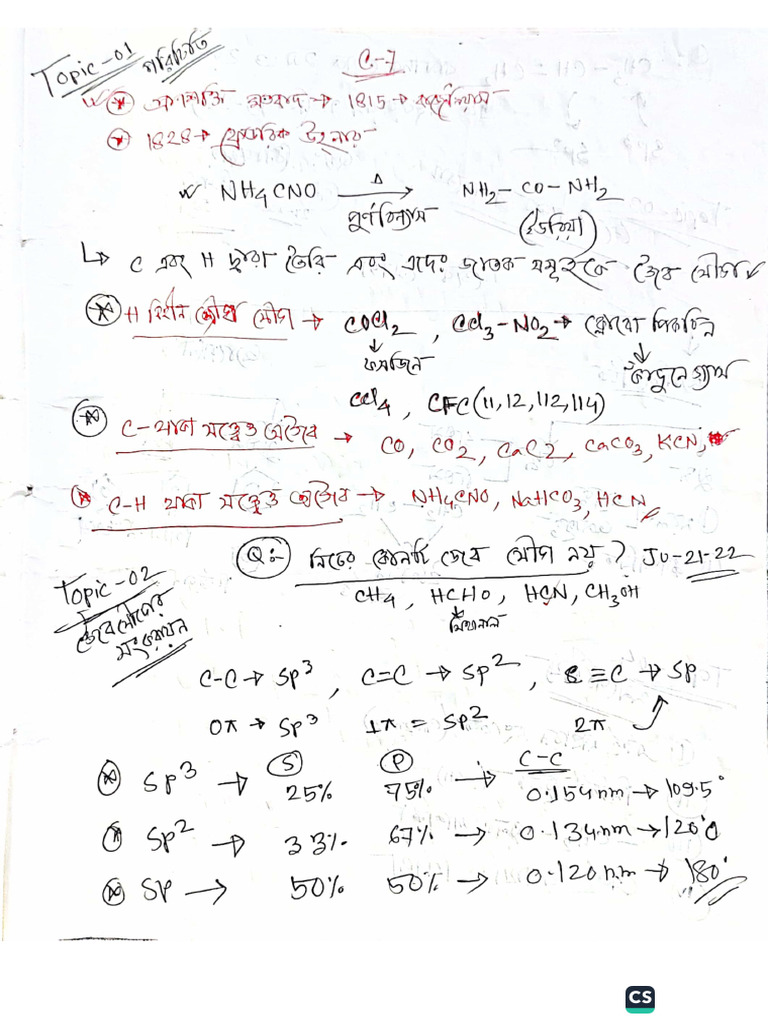 Topic-01 পরিচিতি
C-7
প্রাণশক্তি মতবাদ → 1815 → বার্জেলিয়াস
1828 → ফ্রেডরিক উহলার
NH4CNO —Δ→ NH2-CO-NH2
পুর্ণবিন্যাস (ইউরিয়া)
↳ C এবং H দ্বারা তৈরি এবং এদের জাতক সমূহকে জৈব যৌগ
H বিহীন জৈব যৌগ → COCl2, CCl3-NO2 → ক্লোরো পিকরিন
ফসজিন কাঁদুনে গ্যাস
CCl4, CFC(11,12,112,114)
C-থাকা সত্ত্বেও অজৈব → CO, CO2, CaC2, CaCO3, KCN,
C-H থাকা সত্ত্বেও অজৈব → NH4CNO, NaHCO3, HCN
Q:- নিচের কোনটি জৈব যৌগ নয়? JU-21-22
Topic-02
CH4, HCHO, HCN, CH3OH
জৈব যৌগের
মিথানাল
সংকরায়ন
C-C → SP3, C=C → SP2, C≡C → SP
0π → SP3 1π = SP2 2π
S P C-C
SP3 → 25% 75% → 0.154nm → 109.5°
SP2 → 33% 67% → 0.134nm → 120°
SP → 50% 50% → 0.120nm → 180°
CS